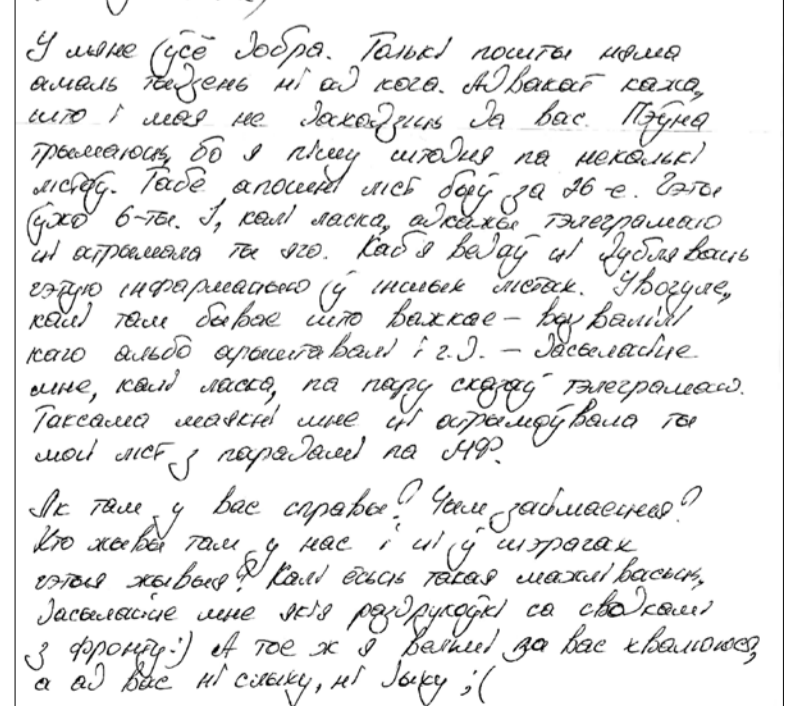 У мяне ўсё добра. Толькі пошты няма
амаль тыдзень ні ад кога. Адвакат кажа,
што і мая не даходзіць да вас. Пэўна
трымаюць, бо я пішу штодня па некалькі
лістоў. Табе апошні ліст быў за 26-е. Гэты
ўжо 6-ты. І, калі ласка, адкажы тэлеграмаю
ці атрымала ты яго. Каб я ведаў ці дубляваць
гэтую інфармацыю ў іншых лістах. Увогуле,
калі там бывае што важкае – вызвалілі
каго альбо арыштавалі і г.д. – дасылайце
мне, калі ласка, па пару сказаў тэлеграмаю.
Таксама маякні мне ці атрымоўвала ты
мой ліст з парадамі па МФ.
Як там у вас справы? Чым займаешся?
Хто жывы там у нас і ці ў шэрагах
гэтыя жывыя? Калі ёсць такая магчывасьць,
дасылайце мне якія раздрукоўкі са сводкамі
з фронту :) А тое ж я вельмі за вас хвалююся,
а ад вас ні слыху, ні дыху ;(